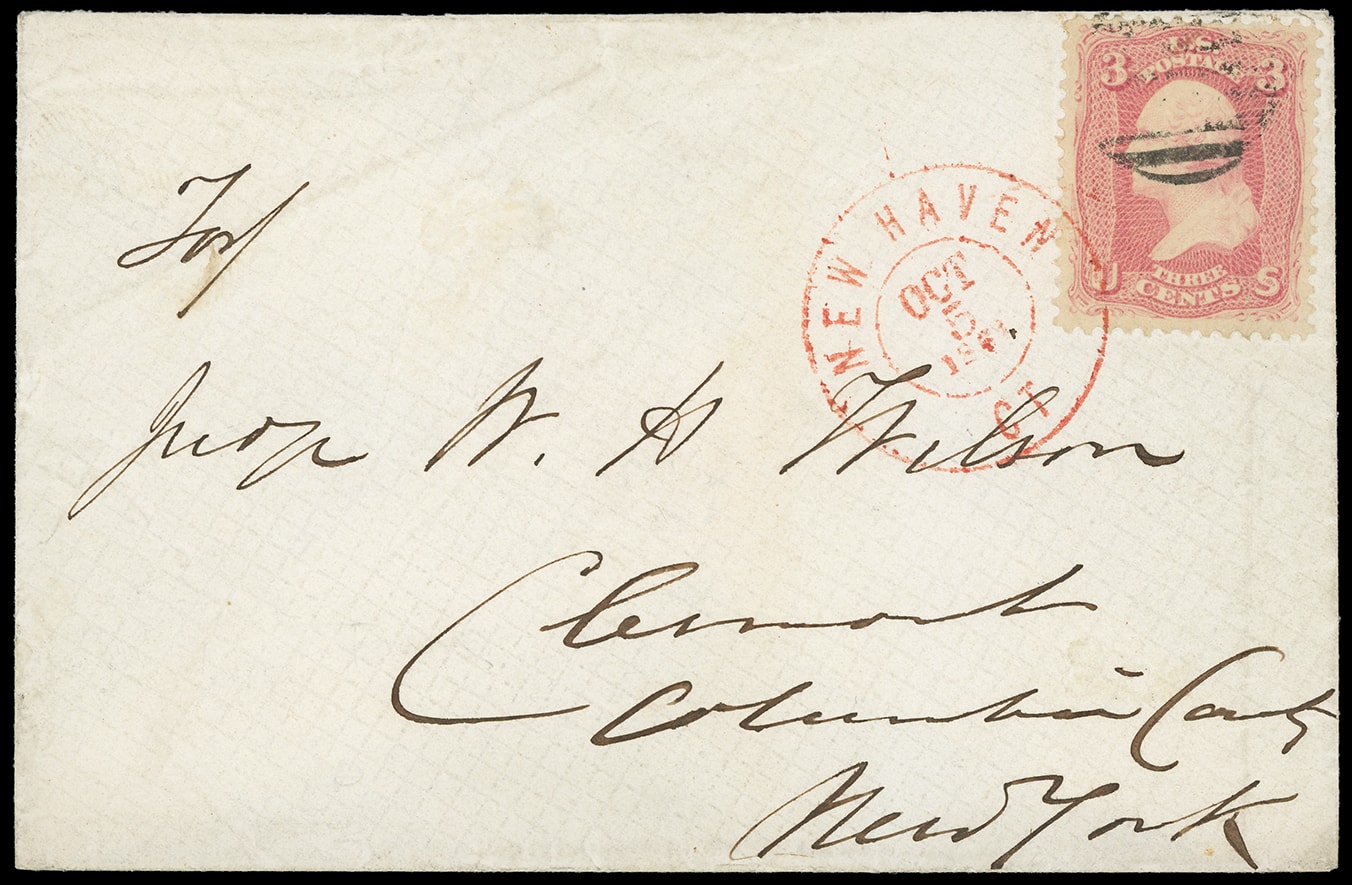 U.S.
POSTAGE
3 3
THREE
CENTS
U S
NEW HAVEN
OCT
5
CT
For
Judge W. H Wilson
Clermont
Columbia County
New York